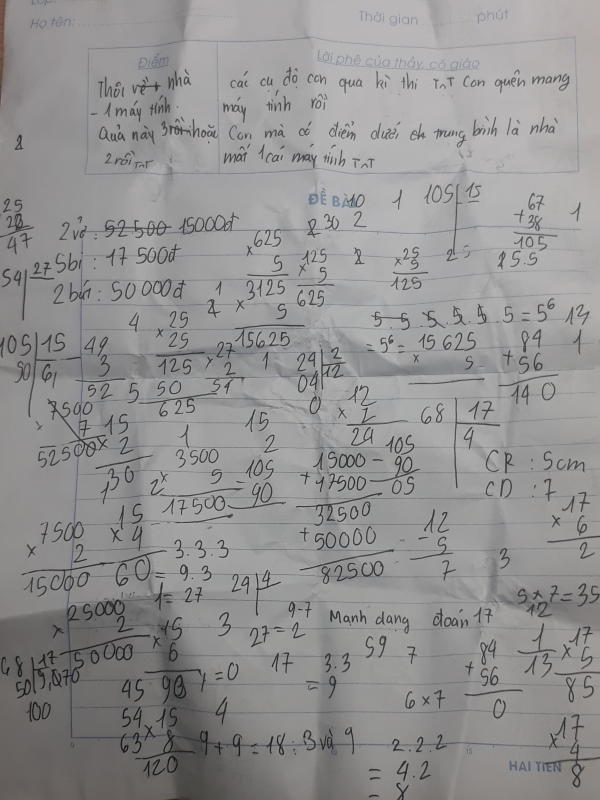 Họ tên:
Thời gian phút
Điểm
Lời phê của thầy, cô giáo
Thôi về nhà
- 1 máy tính.
Quả này 3 rồi hoặc
2 rồi TnT
các cụ độ con qua kì thi TnT Con quên mang
máy tính rồi
Con mà có điểm dưới trung bình là nhà
mất 1 cái máy tính TnT
ĐỀ BÀI
25
47
2 vở : 52 500 15000đ
5 bi : 17 500đ
2 bút : 50 000đ
54 27
105 15
67
+ 38
105
1
625
x 5
3125
x 5
15625
125
x 5
625
25
x 5
125
25.5
5.5.5.5.5.5 = 5⁶
= 5⁶ = 15 625
13
105 15
90 6
49
3
52
25
x 25
125
50
625
27
x 2
54
24 2
04 12
0
12
x 2
24
84
+ 56
140
1
68 17
4
7500
x 7
52500
15
x 2
30
3500
x 5
17500
15
2
105
- 90
15000
+ 17500
32500
+ 50000
82500
105
- 90
05
CR : 5cm
CD : 7
7500
x 2
15000
15
x 4
60
3.3.3
= 9.3
= 27
12
- 5
7
3
17
x 6
2
5 x 7 = 35
12
25000
x 2
50000
15
x 6
90
24 4
3
9-7
27 = 2
Mạnh dang đoán 17
59
7
84
+ 56
0
1
13
17
x 5
85
68 17
100
45
54
63
15
x 8
120
= 0
4
17
3.3
= 9
6 x 7
9 + 9 = 18 : 3 và 9
2.2.2
= 4.2
= 8
17
x 4
8
HAI TIEN